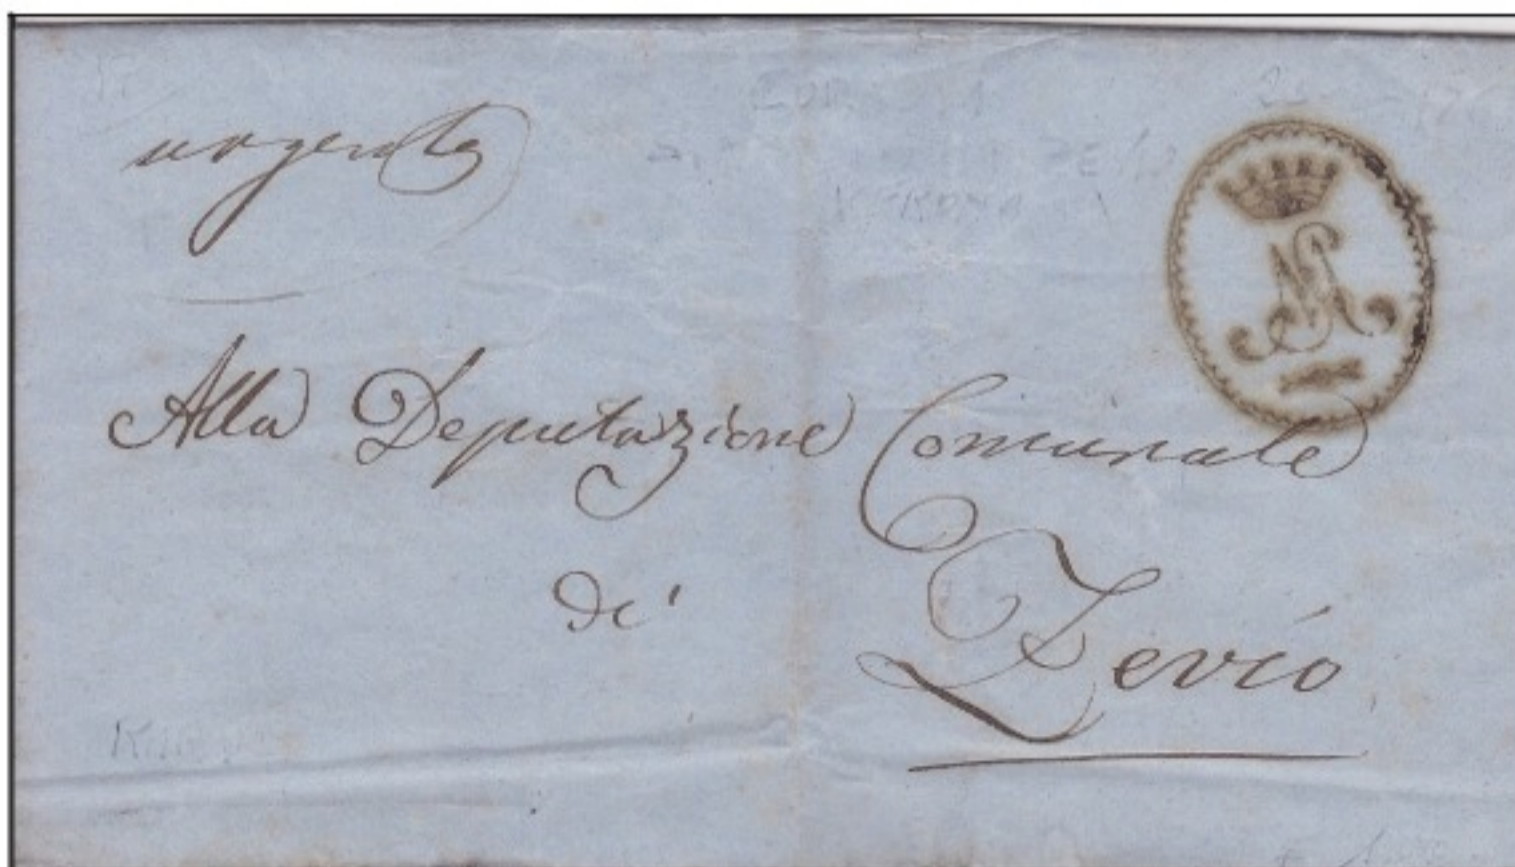 urgente
Alla Deputazione Comunale
di
Zevio